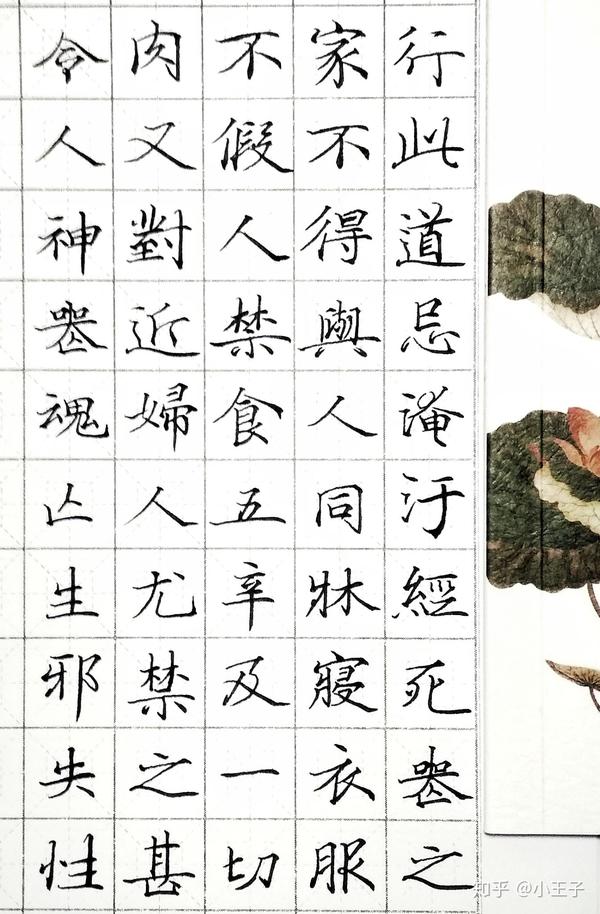 行此道忌淹汙經死喪之
家不得與人同牀寢衣服
不假人禁食五辛及一切
肉又對近婦人尤禁之甚
令人神喪魂亡生邪失性
知乎 @小王子